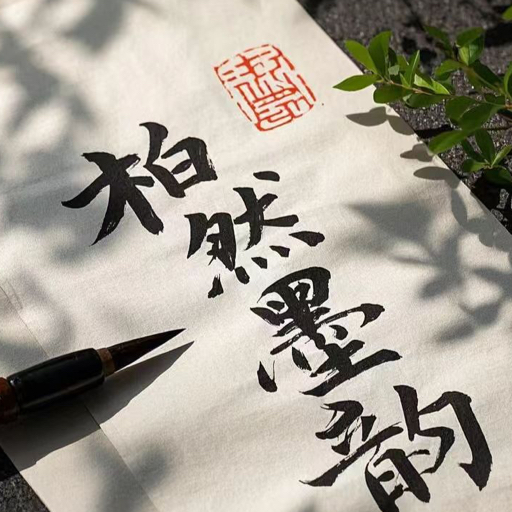 柏然墨韵